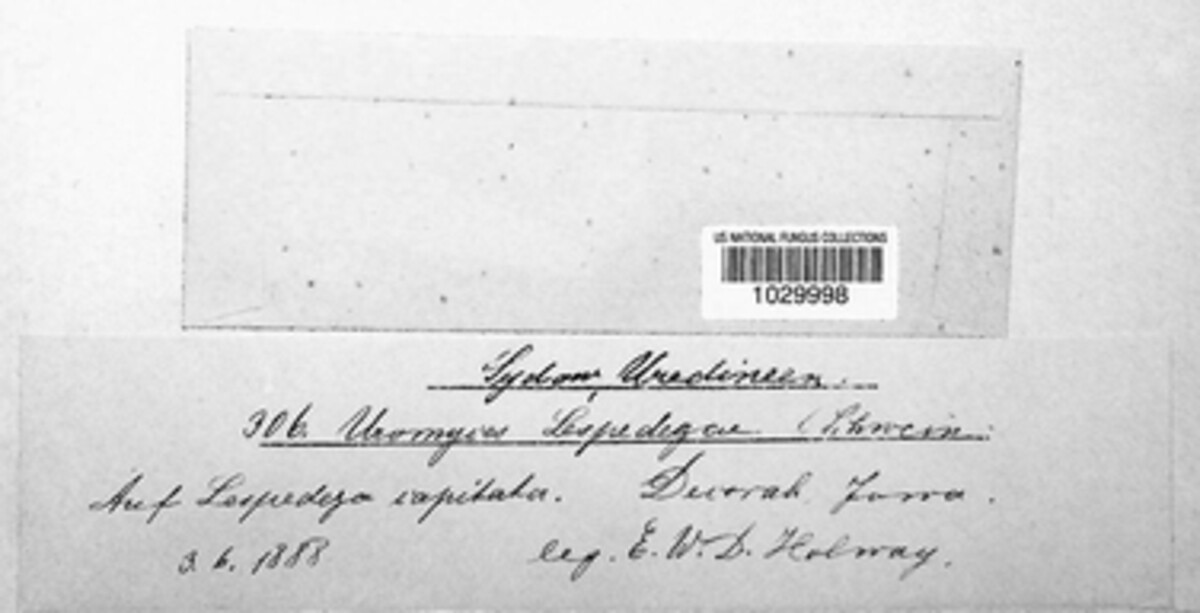 US NATIONAL FUNGUS COLLECTIONS
1029998
Sydow, Uredineen.
306. Uromyces Lespedezae (Schwein.
Auf Lespedeza capitata. Decorah, Iowa.
3. 6. 1888 leg. E. W. D. Holway.